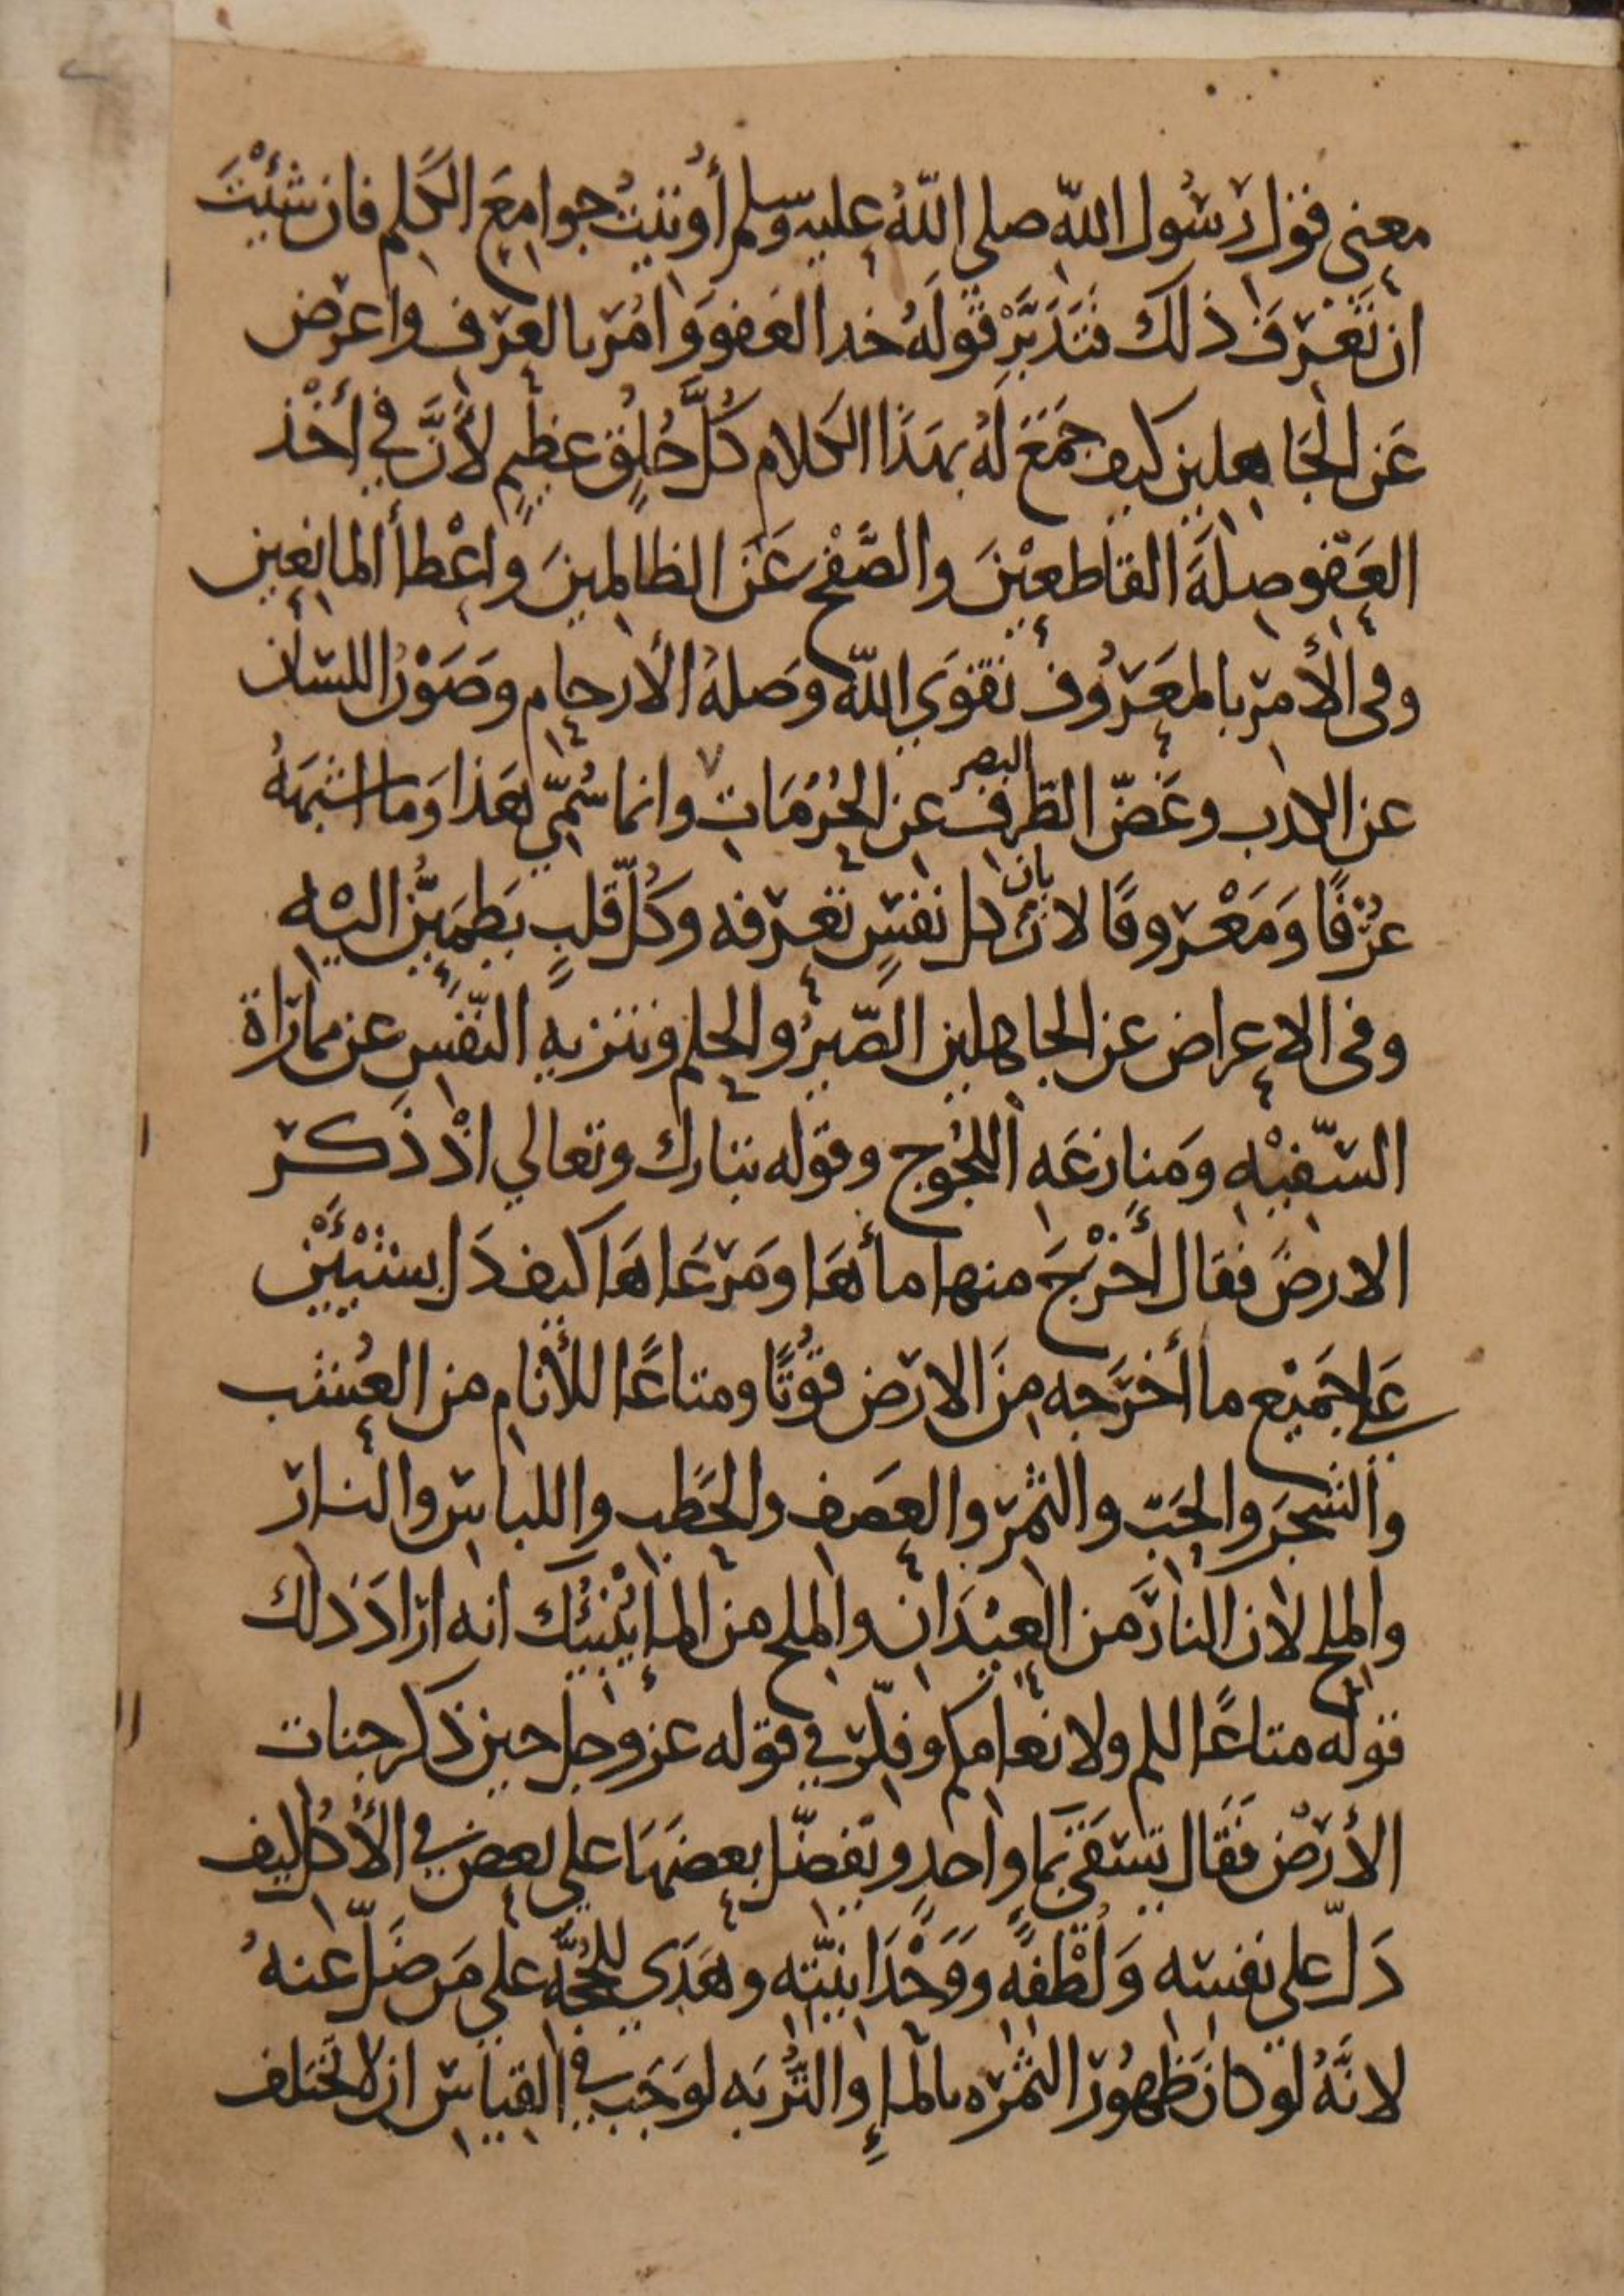 معنى قول رَسُول اللّه صلى اللّهُ عليه وسلم أُوتيتُ جوامعَ الكَلم فان شئْتَ
ان تَعْرفَ ذلك فتَدَبَّرْ قولَهُ خذ العَفووَ وامُر بالعرف واعرض
عَن الجَاهلين كيف جَمَعَ لَهُ بهَذَا الكلام كُلَّ خُلِقٍ عظيمٍ لأَنَّ في أخْذ
العَفو صلَةَ القاطعيْنَ والصَّفْح عَن الظالمينَ واعْطأ المانعين
وفى الأمر بالمعَرُوف تقوَي اللّه وصَلهُ الأرحام وصَوْنُ اللسان
عن الكذب وغَضّ الطّرف عن الحُرُمَات وانما سُمّي هَذا وَما اشبَهَهُ
البصر
عُرْفًا وَمَعْروفًا لان كل نفسٍ تعرفه وكُلّ قلبٍ يَطمَئِنُّ اليْه
بان
وفى الاعراض عن الجاهلين الصّبرُ والحلم وتنزيه النّفسِ عن مماراة
السّفيْه ومَنازعَه اللجُوج وقوله تبارك وتعالي اذْ ذَكر
الارضَ فقال أخْرجَ منها مأهَا ومَرعَاهَا كيف دَل بشيْئَيْن
عَلى جَميْع ما أخرَجه مِنَ الارض قوُتًا ومتاعًا للأنام من العُشب
والشجَر والحَبّ والثمَر والعصَف والحَطب واللباس والنار
والملح لان النارَ من العيْدَان والملح من الما يُنْبئُك انه ارادَ ذلك
قوله متاعًا لكم ولانعامكم وفكّر في قوله عز وجل حين ذكر جنات
الأرض فَقَال تسقَي بما واحدٍ ونفضّل بعضهَا على بعض في الأُكُل كيف
دَلّ على نفسه وَلُطْفِه ووَحْدَانيّته وهَدَى للحُجَّه على مَن ضَلّ عنهُ
لانَّهُ لو كان ظهُور الثمَره بالمإ والتُّربَه لوَجَبَ في القياس ان لا تختلف